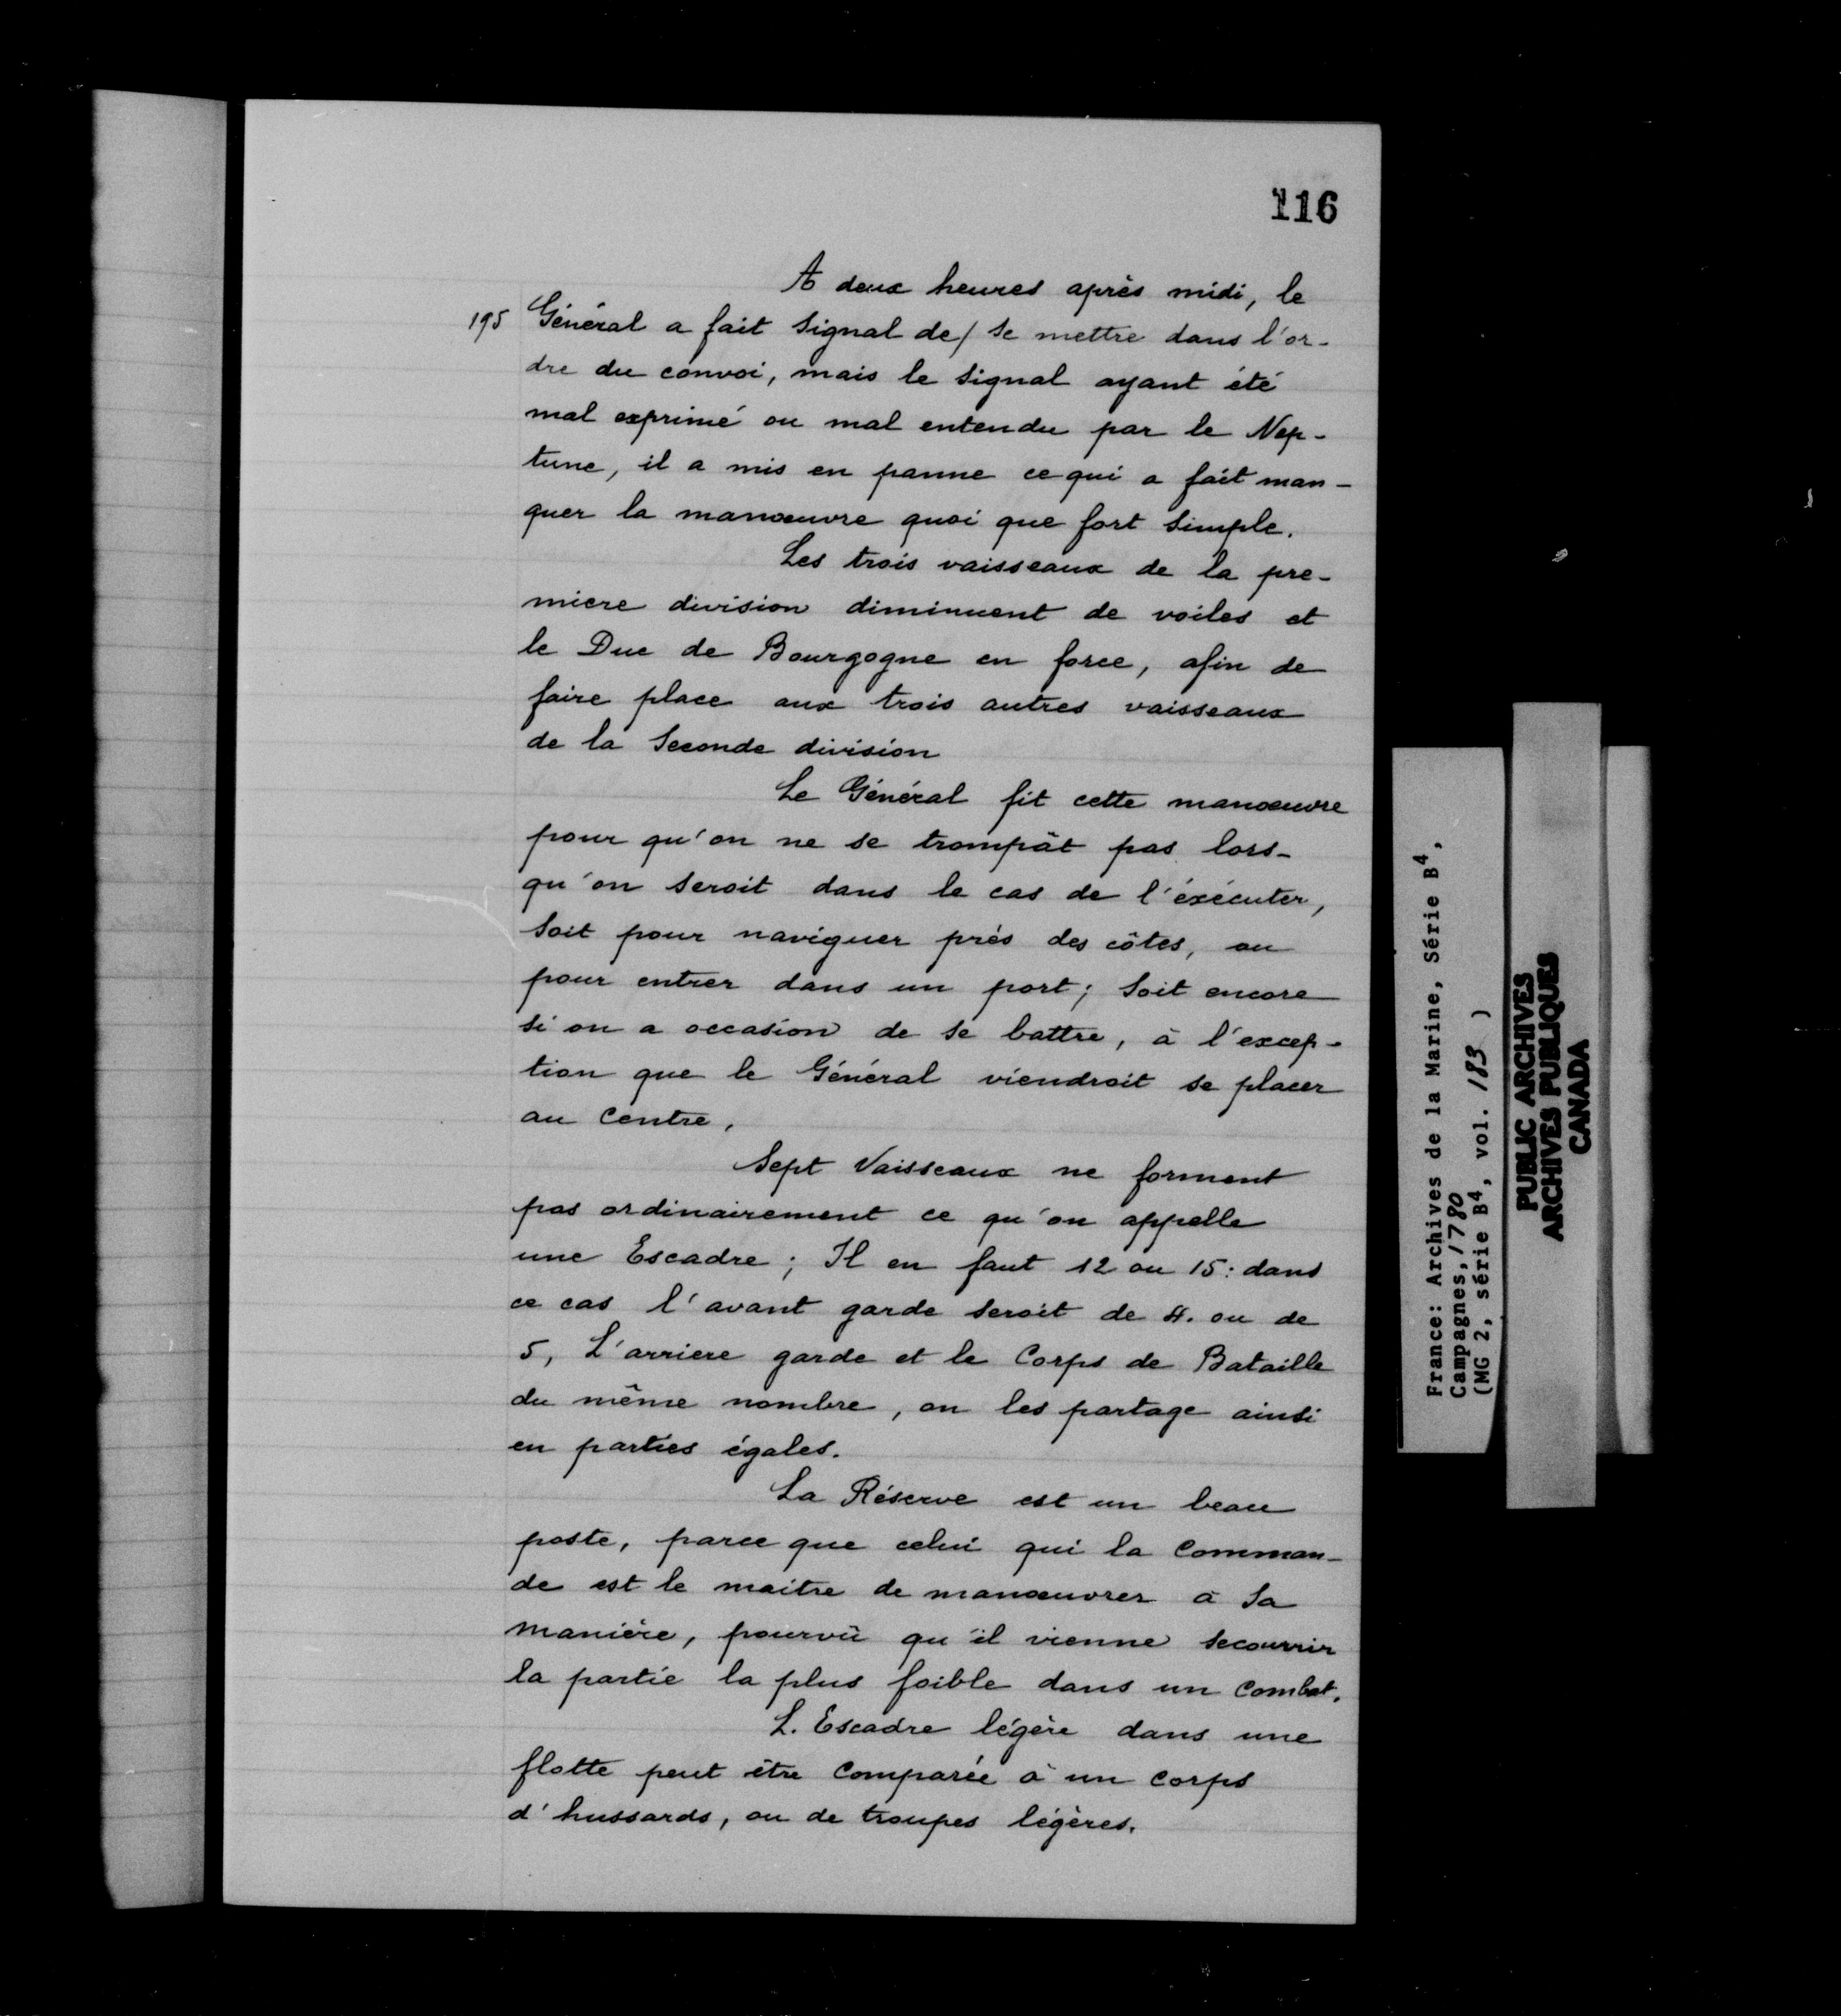 116
A deux heures après midi, le
195 Général a fait signal de / se mettre dans l'or-
dre du convoi, mais le signal ayant été
mal exprimé ou mal entendu par le Nep-
tune, il a mis en panne ce qui a fait man-
quer la manœuvre quoi que fort simple.
Les trois vaisseaux de la pre-
miere division diminuent de voiles et
le Duc de Bourgogne en force, afin de
faire place aux trois autres vaisseaux
de la seconde division
Le Général fit cette manœuvre
pour qu'on ne se trompât pas lors-
qu'on seroit dans le cas de l'éxécuter,
soit pour naviguer près des côtes, ou
pour entrer dans un port; soit encore
si on a occasion de se battre, à l'excep-
tion que le Général viendroit se placer
au centre.
Sept Vaisseaux ne forment
pas ordinairement ce qu'on appelle
une Escadre; Il en faut 12 ou 15: dans
ce cas l'avant garde seroit de 4. ou de
5, L'arriere garde et le Corps de Bataille
du même nombre, on les partage ainsi
en parties égales.
La Réserve est un beau
poste, parce que celui qui la comman-
de est le maitre de manœuvrer à sa
manière, pourvû qu'il vienne secourrir
la partie la plus foible dans un combat.
L. Escadre légère dans une
flotte peut être comparée à un corps
d'hussards, ou de troupes légères.
France: Archives de la Marine, Série B4,
Campagnes, 1780
(MG 2, série B4, vol. 183 )
PUBLIC ARCHIVES
ARCHIVES PUBLIQUES
CANADA